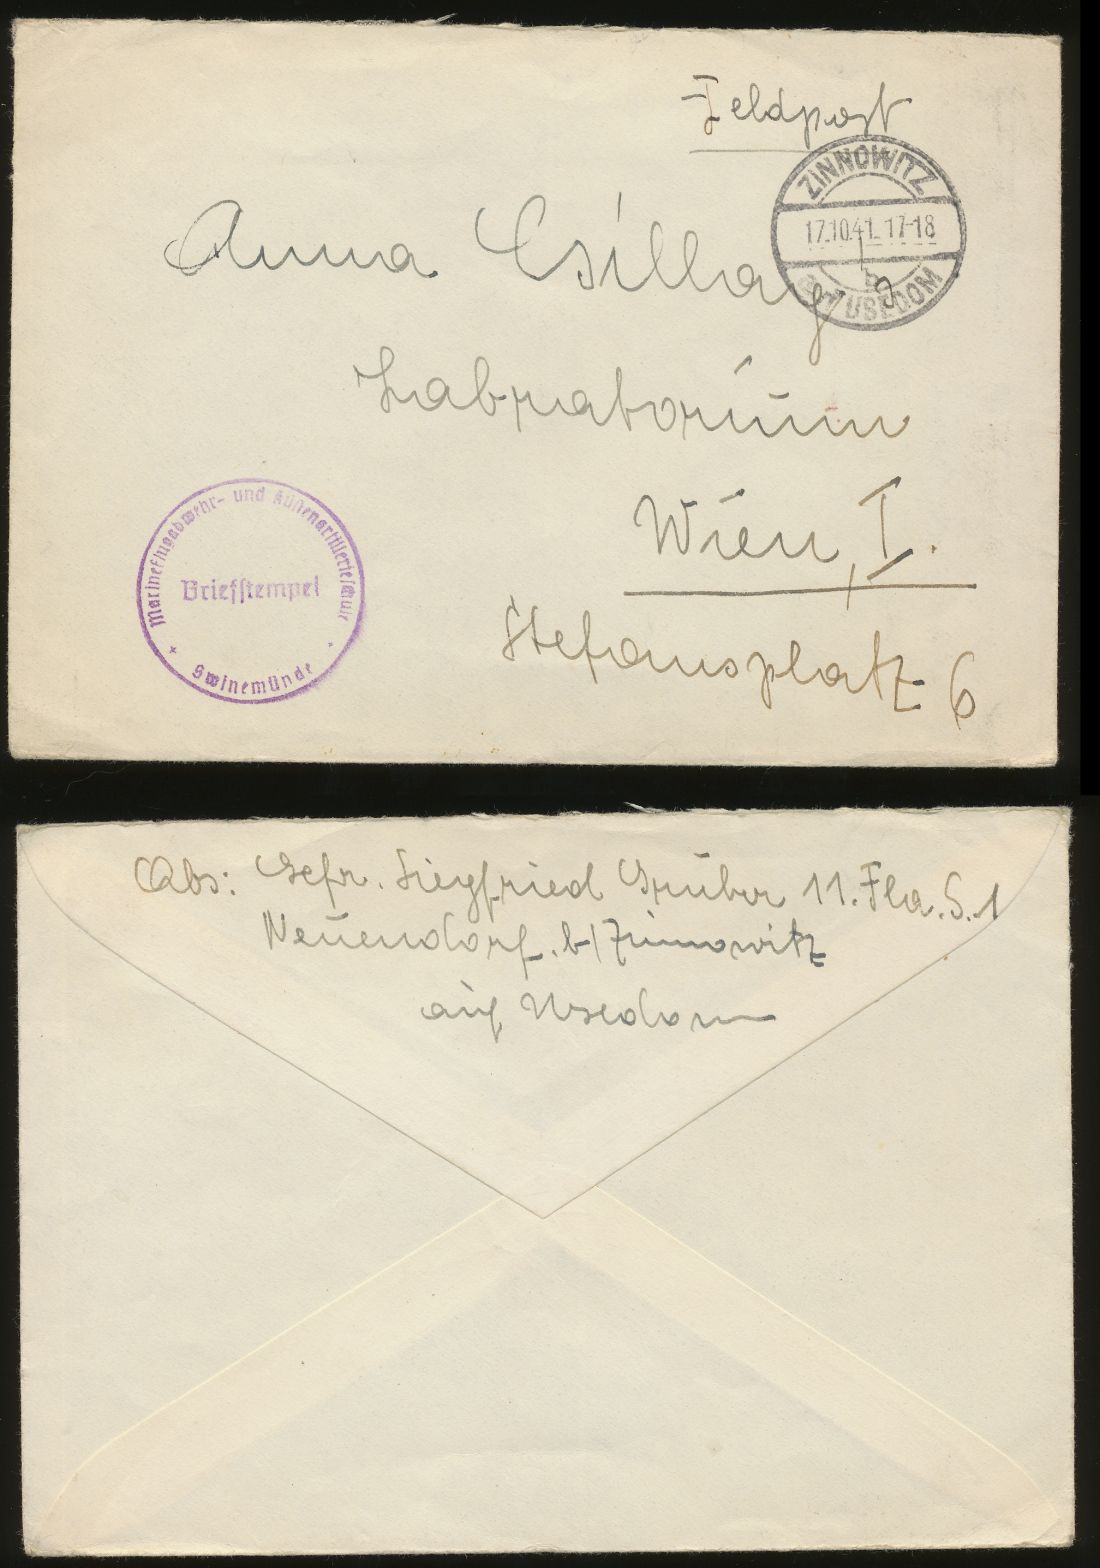 Feldpost
ZINNOWITZ
17.10.41. 17-18
b
USEDOM
Anna Csillag
Labratorium
Wien, I.
Stefansplatz 6
Marineflugabwehr- und Küstenartillerieschule
Briefstempel
Swinemünde
Abs: Gefr. Siegfried Gruber 11. Fla. S. 1
Neuendorf. b/Zinnowitz
auf Usedom